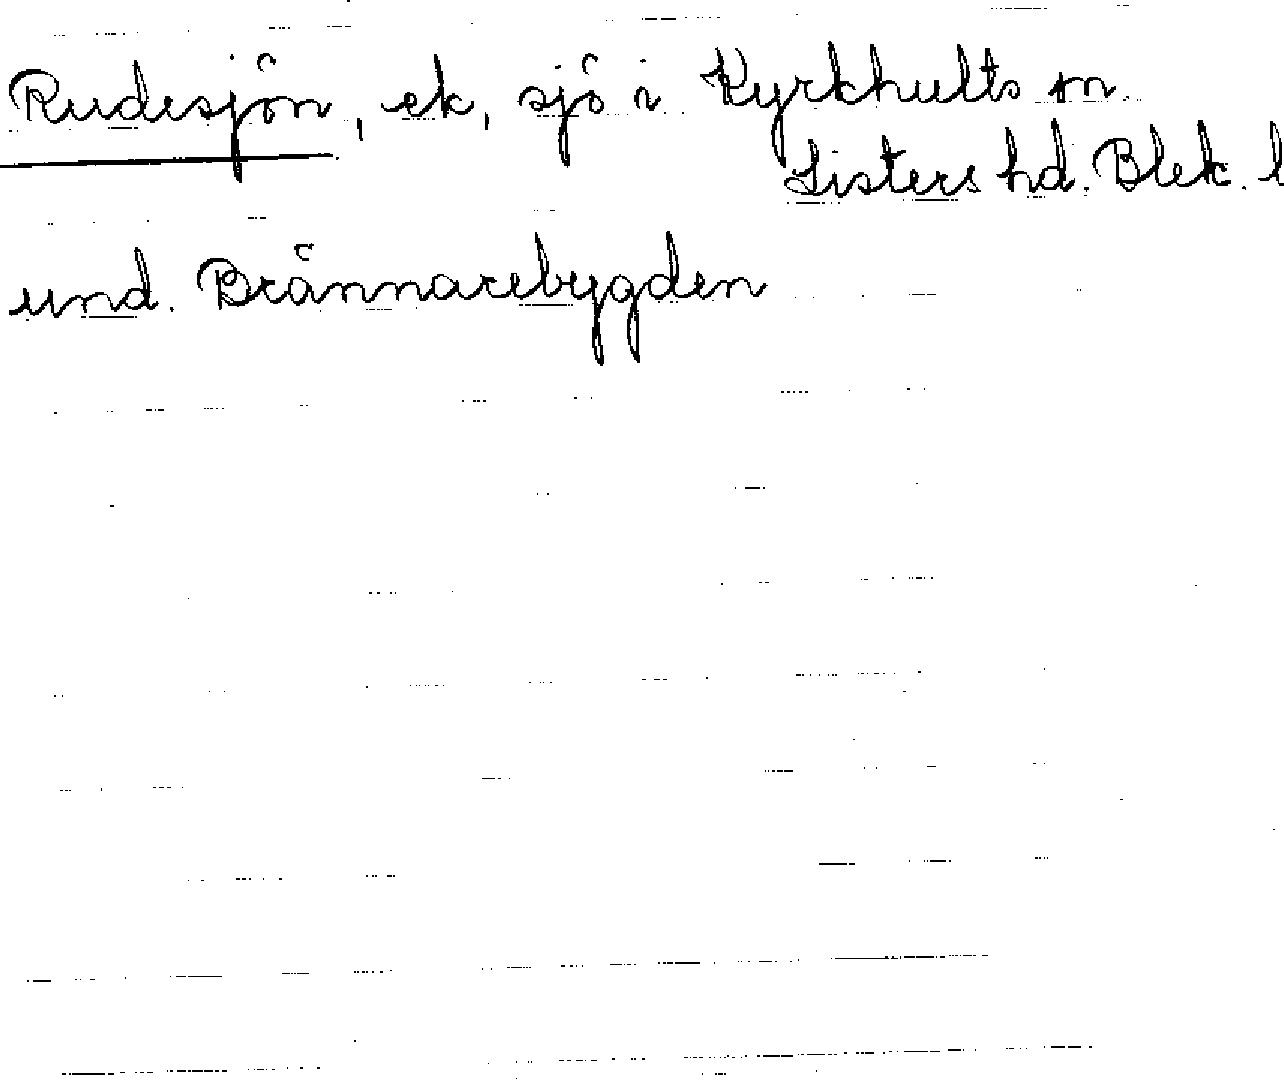 Rudesjön, ek, sjö i Kyrkhults sn.
Listers hd. Blek. l
und. Brännarebygden